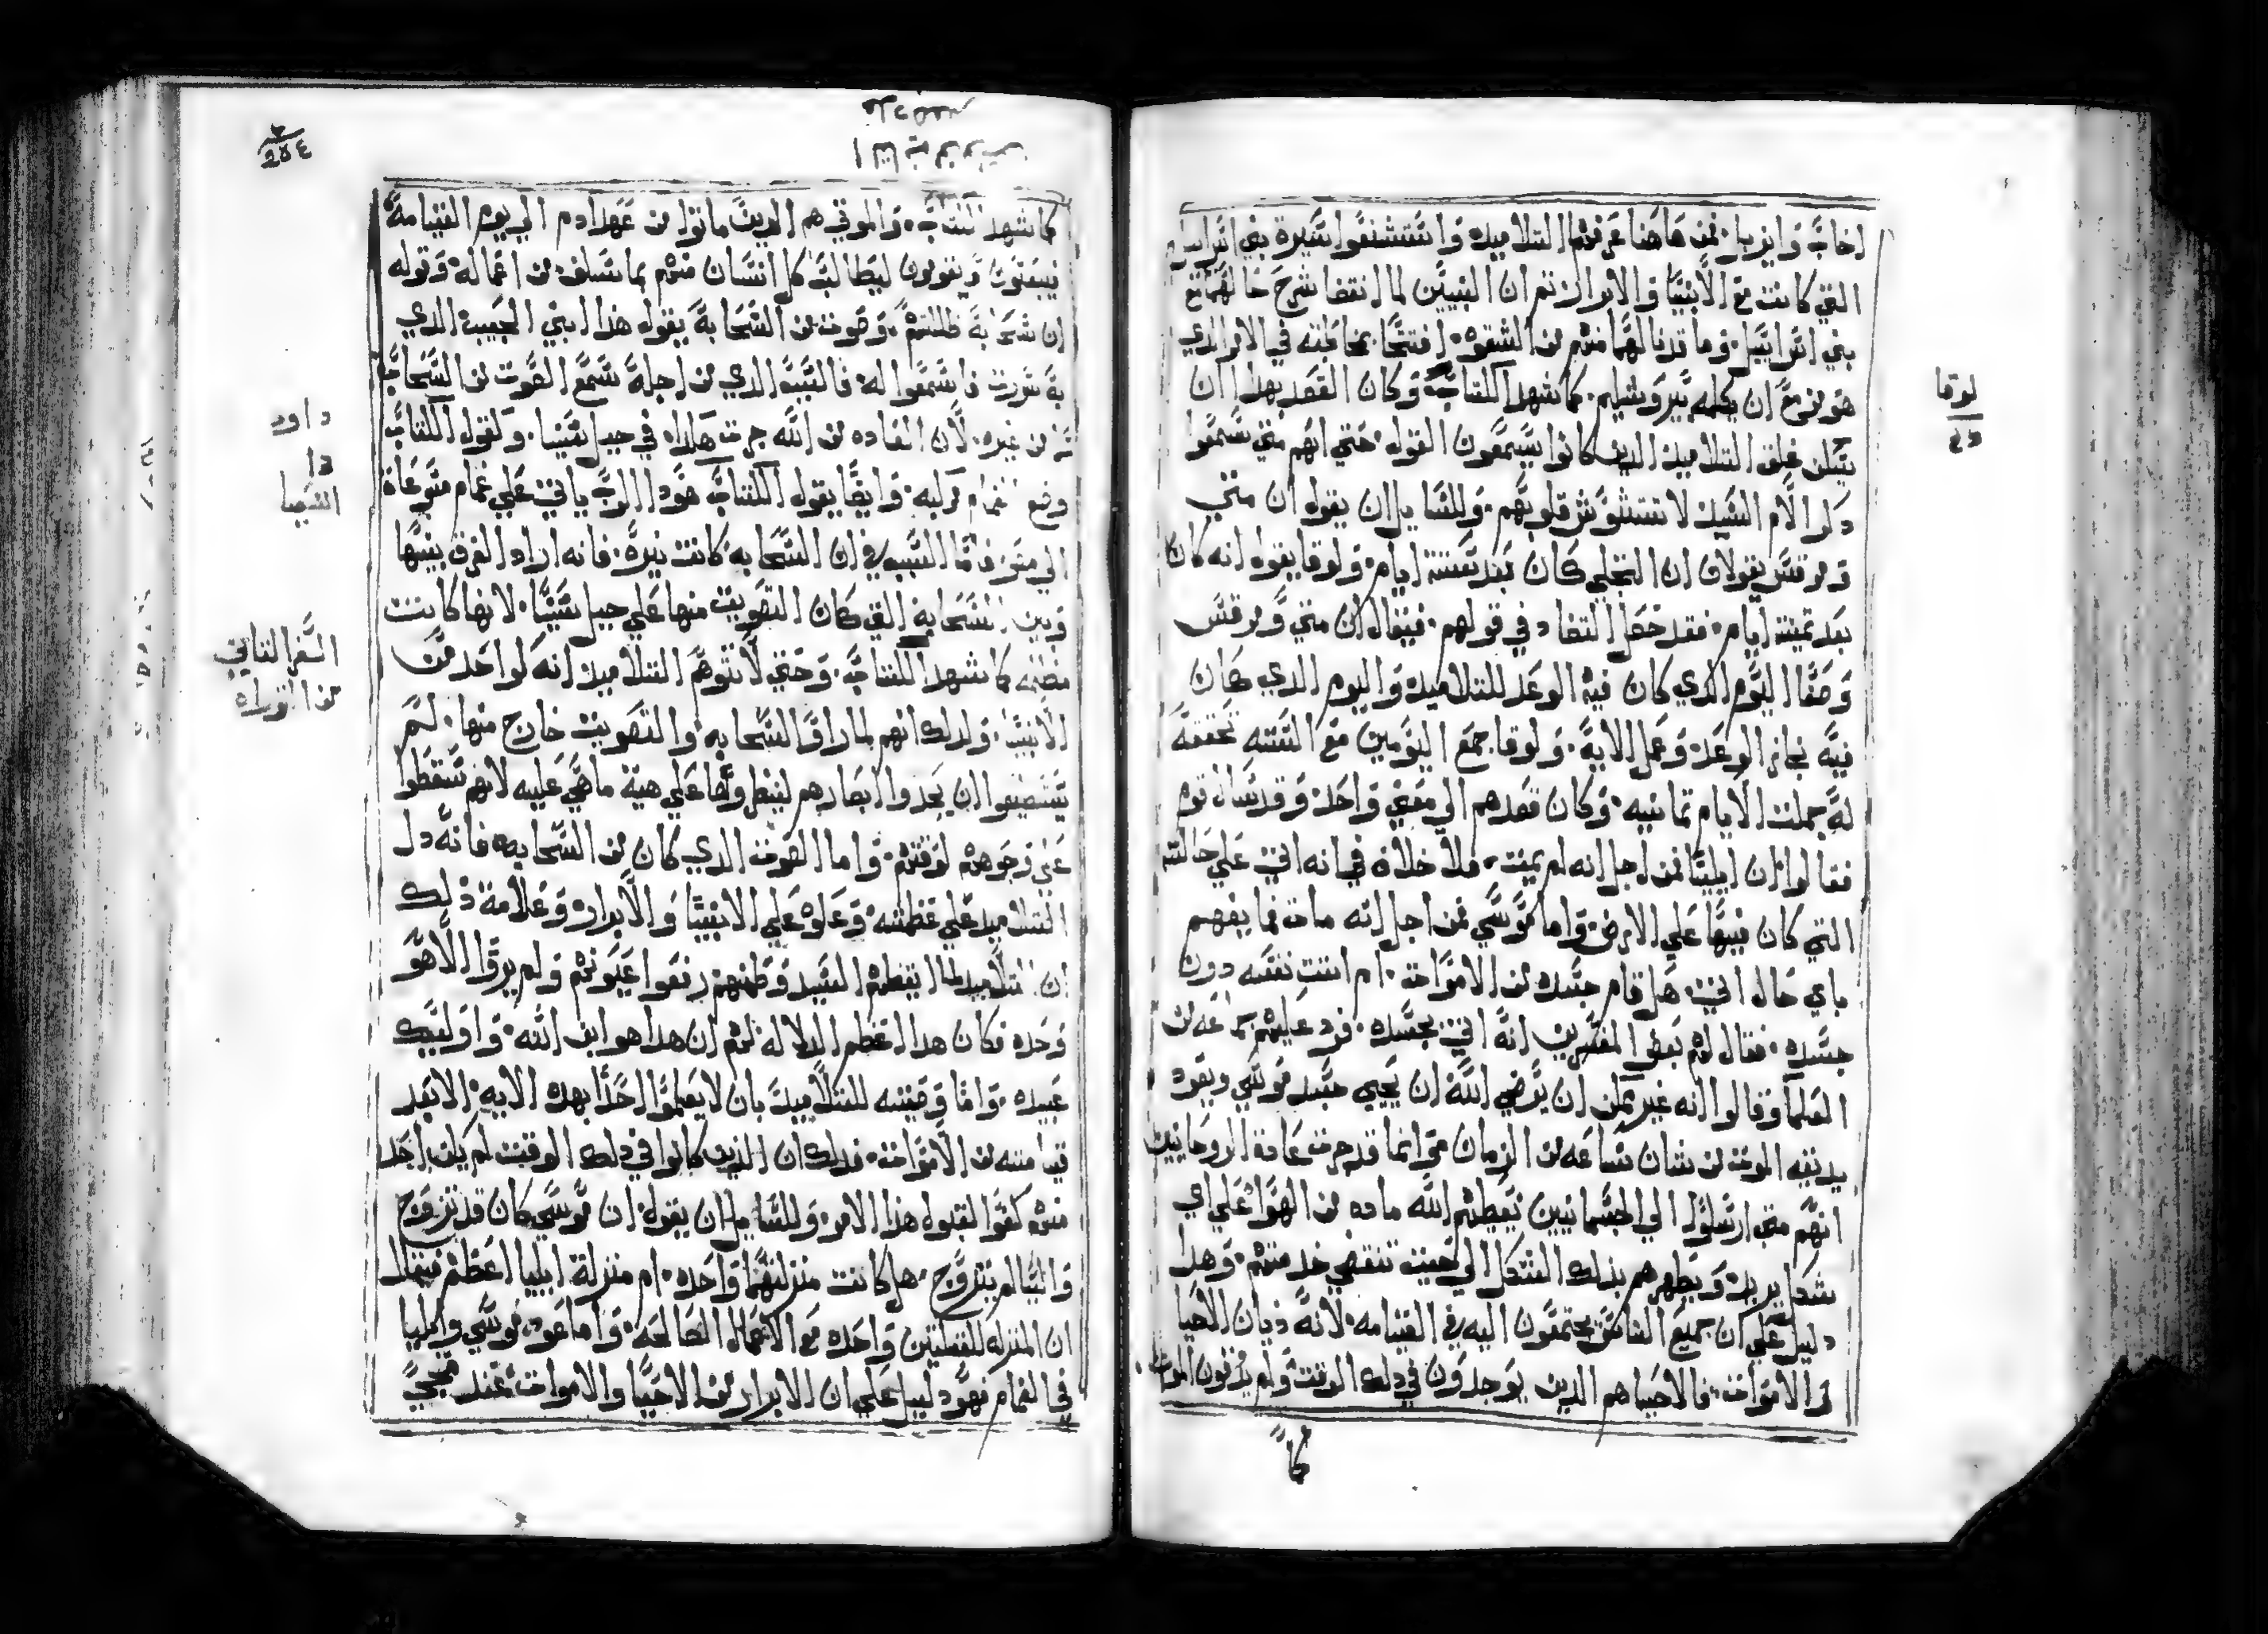 اخاب وايزبل فمن هاهنا عرفهم التلاميد واستشنعوا سيرة بني اسراييل
التي كانت مع الانبيا والابرار تم ان النبيين لما انقضا شرح حالهما مع
بني اسراييل وما قدنالهما منهم من الشقوه افتتحا بمخاطبته في الامر الدي
هو مزمع ان يكمله بيروشليم كما شهد الكتاب وكان القصد بهدا ان
يسكن قلق التلاميد الدين كانوا يسمعون القول حتي انهم متي سمعوا
دكر الام السيد لا تتشوش قلوبهم وللسايل ان يقول ان متي
ومرقس يقولان ان التجلي كان بعد ستة ايام ولوقا يقول انه كان
بعد تمنية ايام فقد حصل التضاد في قولهم فيقال ان متي ومرقس
وصفا اليوم الدي كان فيه الوعد للتلاميد واليوم الدي كان
فيه نجاز الوعد وعمل الاية ولوقا جمع اليومين مع الستة فحققه
له جملت الايام تمانيه وكان قصدهم الي معني واحد وقد سال قوم
فقالوا ان ايليا من اجل انه لم يمت فلا خلاف في انه اتي علي حالته
التي كان فيها علي الارض واما موسي فمن اجل انه مات فما يفهم
باي حال اتي هل قام جسده من الاموات ام اتت نفسه دون
جسده فقال لهم بعض المفسرين انه اتي بجسده فرد عليهم جماعه من
العلما وقالوا انه غير ممكن ان يرضي الله ان يحيي جسد موسي ويعود
يديقه الموت من شان ساعه من الزمان وانما قد جرت عادة الروحانيين
انهم متي ارسلوا الي الجسمانيين يعطيهم الله ماده من الهوا علي اي
شكل يريد ويظهرهم بدلك الشكل الي حيث تنقضي خدمتهم وهدا
دليل علي ان جميع الناس يجتمعون اليه في القيامه لانه ديان الاحيا
والاموات فالاحيا هم الدين يوجدون في دلك الوقت ولم يدوقون الموت
كما
لوقا
كما شهد الكتاب والموتي هم الدين ماتوا من عهد ادم الي يوم القيامة
فيبعثون ويقومون ليطالب كل انسان منهم بما سلف من اعماله وقوله
ان سحابة ظللتهم وصوت من السحابة يقول هدا ابني الحبيب الدي
به سررت فاسمعوا له فالسبب الدي من اجله سمع الصوت من السحابه
من غيره لان العاده من الله جرت هكدا في جبل سينا ولقول الكتاب
وضع الغمام مركبه وايضا يقول الكتاب هودا الرب ياتي علي غمام متوجها
الي مصر فاما السبب في ان السحابه كانت نيرة فانه اراد الفرق بينها
وبين السحابه التي كان التصويت منها علي جبل سينا لانها كانت
مظلمه كما شهد الكتاب وحتي لا تتوهم التلاميد انه كواحد من
الانبيا ولدلك انهم لما راوا السحابه والتصويت خارج منها لم
يستطيعوا ان يحدوا ابصارهم لينظروها علي هية ماهي عليه لانهم سقطوا
علي وجوههم لوقتهم واما الصوت الدي كان من السحابه فانه دل
التلاميد علي عظمته وعلوه علي الانبيا والابرار وعلامة دلك
ان التلاميد لما ايقظهم السيد وطمنهم رفعوا عيونهم ولم يروا الا هو
وحده فكان هدا اعظم الدلاله لهم ان هدا هو ابن الله واوليك
عبيده واما وصيته للتلاميد بان لا يعلموا احدا بهده الايه الا بعد
قيامته من الاموات فدلك ان الدين كانوا في دلك الوقت لم يكن احد
منهم كفوا لقبول هدا الامر وللسايل ان يقول ان موسي كان قد تزوج
وايليا لم يتزوج هل كانت منزلتهما واحده ام منزلة ايليا اعظم فيقال
ان المنزله للفضلتين واحده مع الاعمال الصالحه واما صعود موسي وايليا
في الغمام فهو دليل علي ان الابرار من الاحيا والاموات عند مجي
داود
دا
اشعيا
السفر التاني
من التوراه